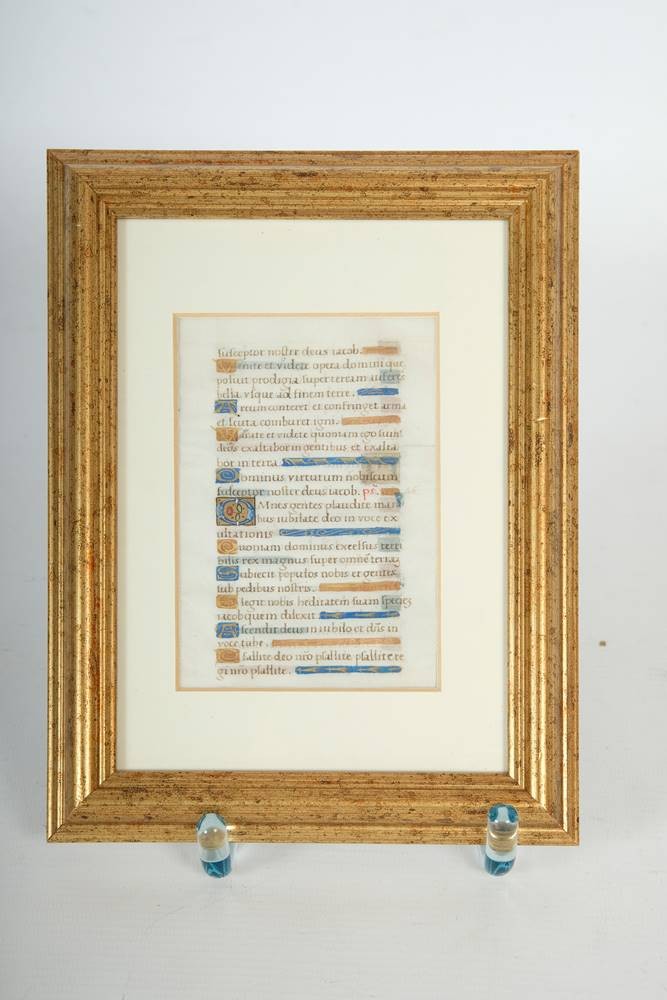 susceptor noster deus iacob.
Venite et videte opera domini que
posuit prodigia super terram auferes
bella vsque ad finem terre.
Arcum conteret et confringet arma
et scuta comburet igni.
Vacate et videte quoniam ego sum
deus exaltabor in gentibus et exalta
bor in terra.
Dominus virtutum nobiscum
susceptor noster deus iacob. ps.
OMnes gentes plaudite mani
bus iubilate deo in voce ex
ultationis
Quoniam dominus excelsus terri
bilis rex magnus super omnē terrā
Subiecit populos nobis et gentes
sub pedibus nostris.
Elegit nobis heditatem suam speciē
iacob quem dilexit
Ascendit deus in iubilo et dn̄s in
voce tube.
Psallite deo nr̄o psallite psallite re
gi nr̄o psallite.